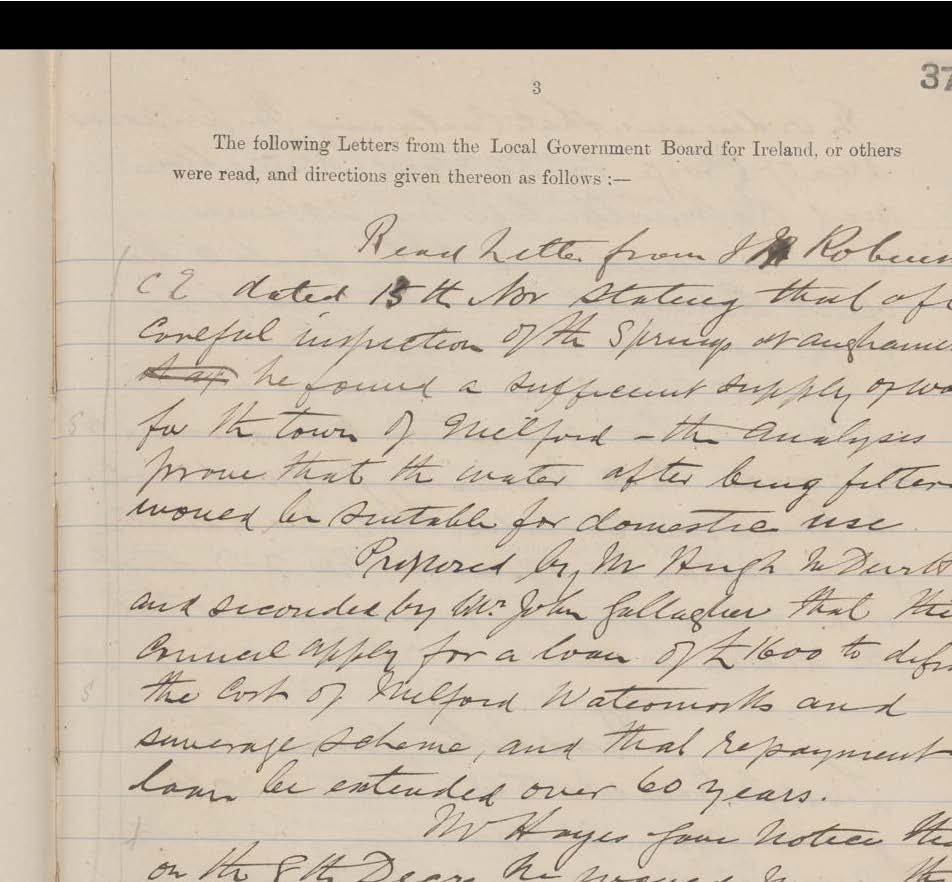 3
37
The following Letters from the Local Government Board for Ireland, or others
were read, and directions given thereon as follows :—
Read Letter from J Robin
C E dated 15th Nov stating that aft
careful inspection of the Springs at
he found a sufficient supply of wa
for the town of Milford - the Analysis
prove that the water after being filter
would be suitable for domestic use
Proposed by Mr Hugh McDevitt
and seconded by Mr John Gallagher that the
Council apply for a loan of £1600 to defr
the Cost of Milford Waterworks and
sewerage scheme, and that repayment
loan be extended over 60 years.
Mr Hayes gave notice tha
on the 8th Decr he would the